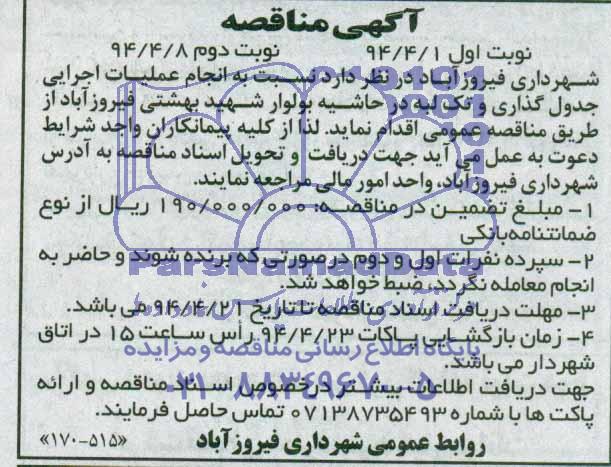 آگهی مناقصه
نوبت اول ۹۴/۴/۱ نوبت دوم ۹۴/۴/۸
شهرداری فیروزآباد در نظر دارد نسبت به انجام عملیات اجرایی
جدول گذاری و تک لبه در حاشیه بولوار شهید بهشتی فیروزآباد از
طریق مناقصه عمومی اقدام نماید. لذا از کلیه پیمانکاران واجد شرایط
دعوت به عمل می آید جهت دریافت و تحویل اسناد مناقصه به آدرس
شهرداری فیروزآباد، واحد امور مالی مراجعه نمایند.
۱- مبلغ تضمین در مناقصه: ۱۹۰/۰۰۰/۰۰۰ ریال از نوع
ضمانتنامه بانکی
۲- سپرده نفرات اول و دوم در صورتی که برنده شوند و حاضر به
انجام معامله نگردد، ضبط خواهد شد.
ParsNamadData
۳- مهلت دریافت اسناد مناقصه تا تاریخ ۹۴/۴/۲۱ می باشد.
۴- زمان بازگشایی پاکات ۹۴/۴/۲۳ رأس ساعت ۱۵ در اتاق
شهردار می باشد.
پایگاه اطلاع رسانی مناقصه و مزایده
جهت دریافت اطلاعات بیشتر در خصوص اسناد مناقصه و ارائه
۰۲۱-۸۸۳۴۹۶۷۰-۵
پاکت ها با شماره ۰۷۱۳۸۷۳۵۴۹۳ تماس حاصل فرمایند.
روابط عمومی شهرداری فیروزآباد
«۵۱۵-۱۷۰»